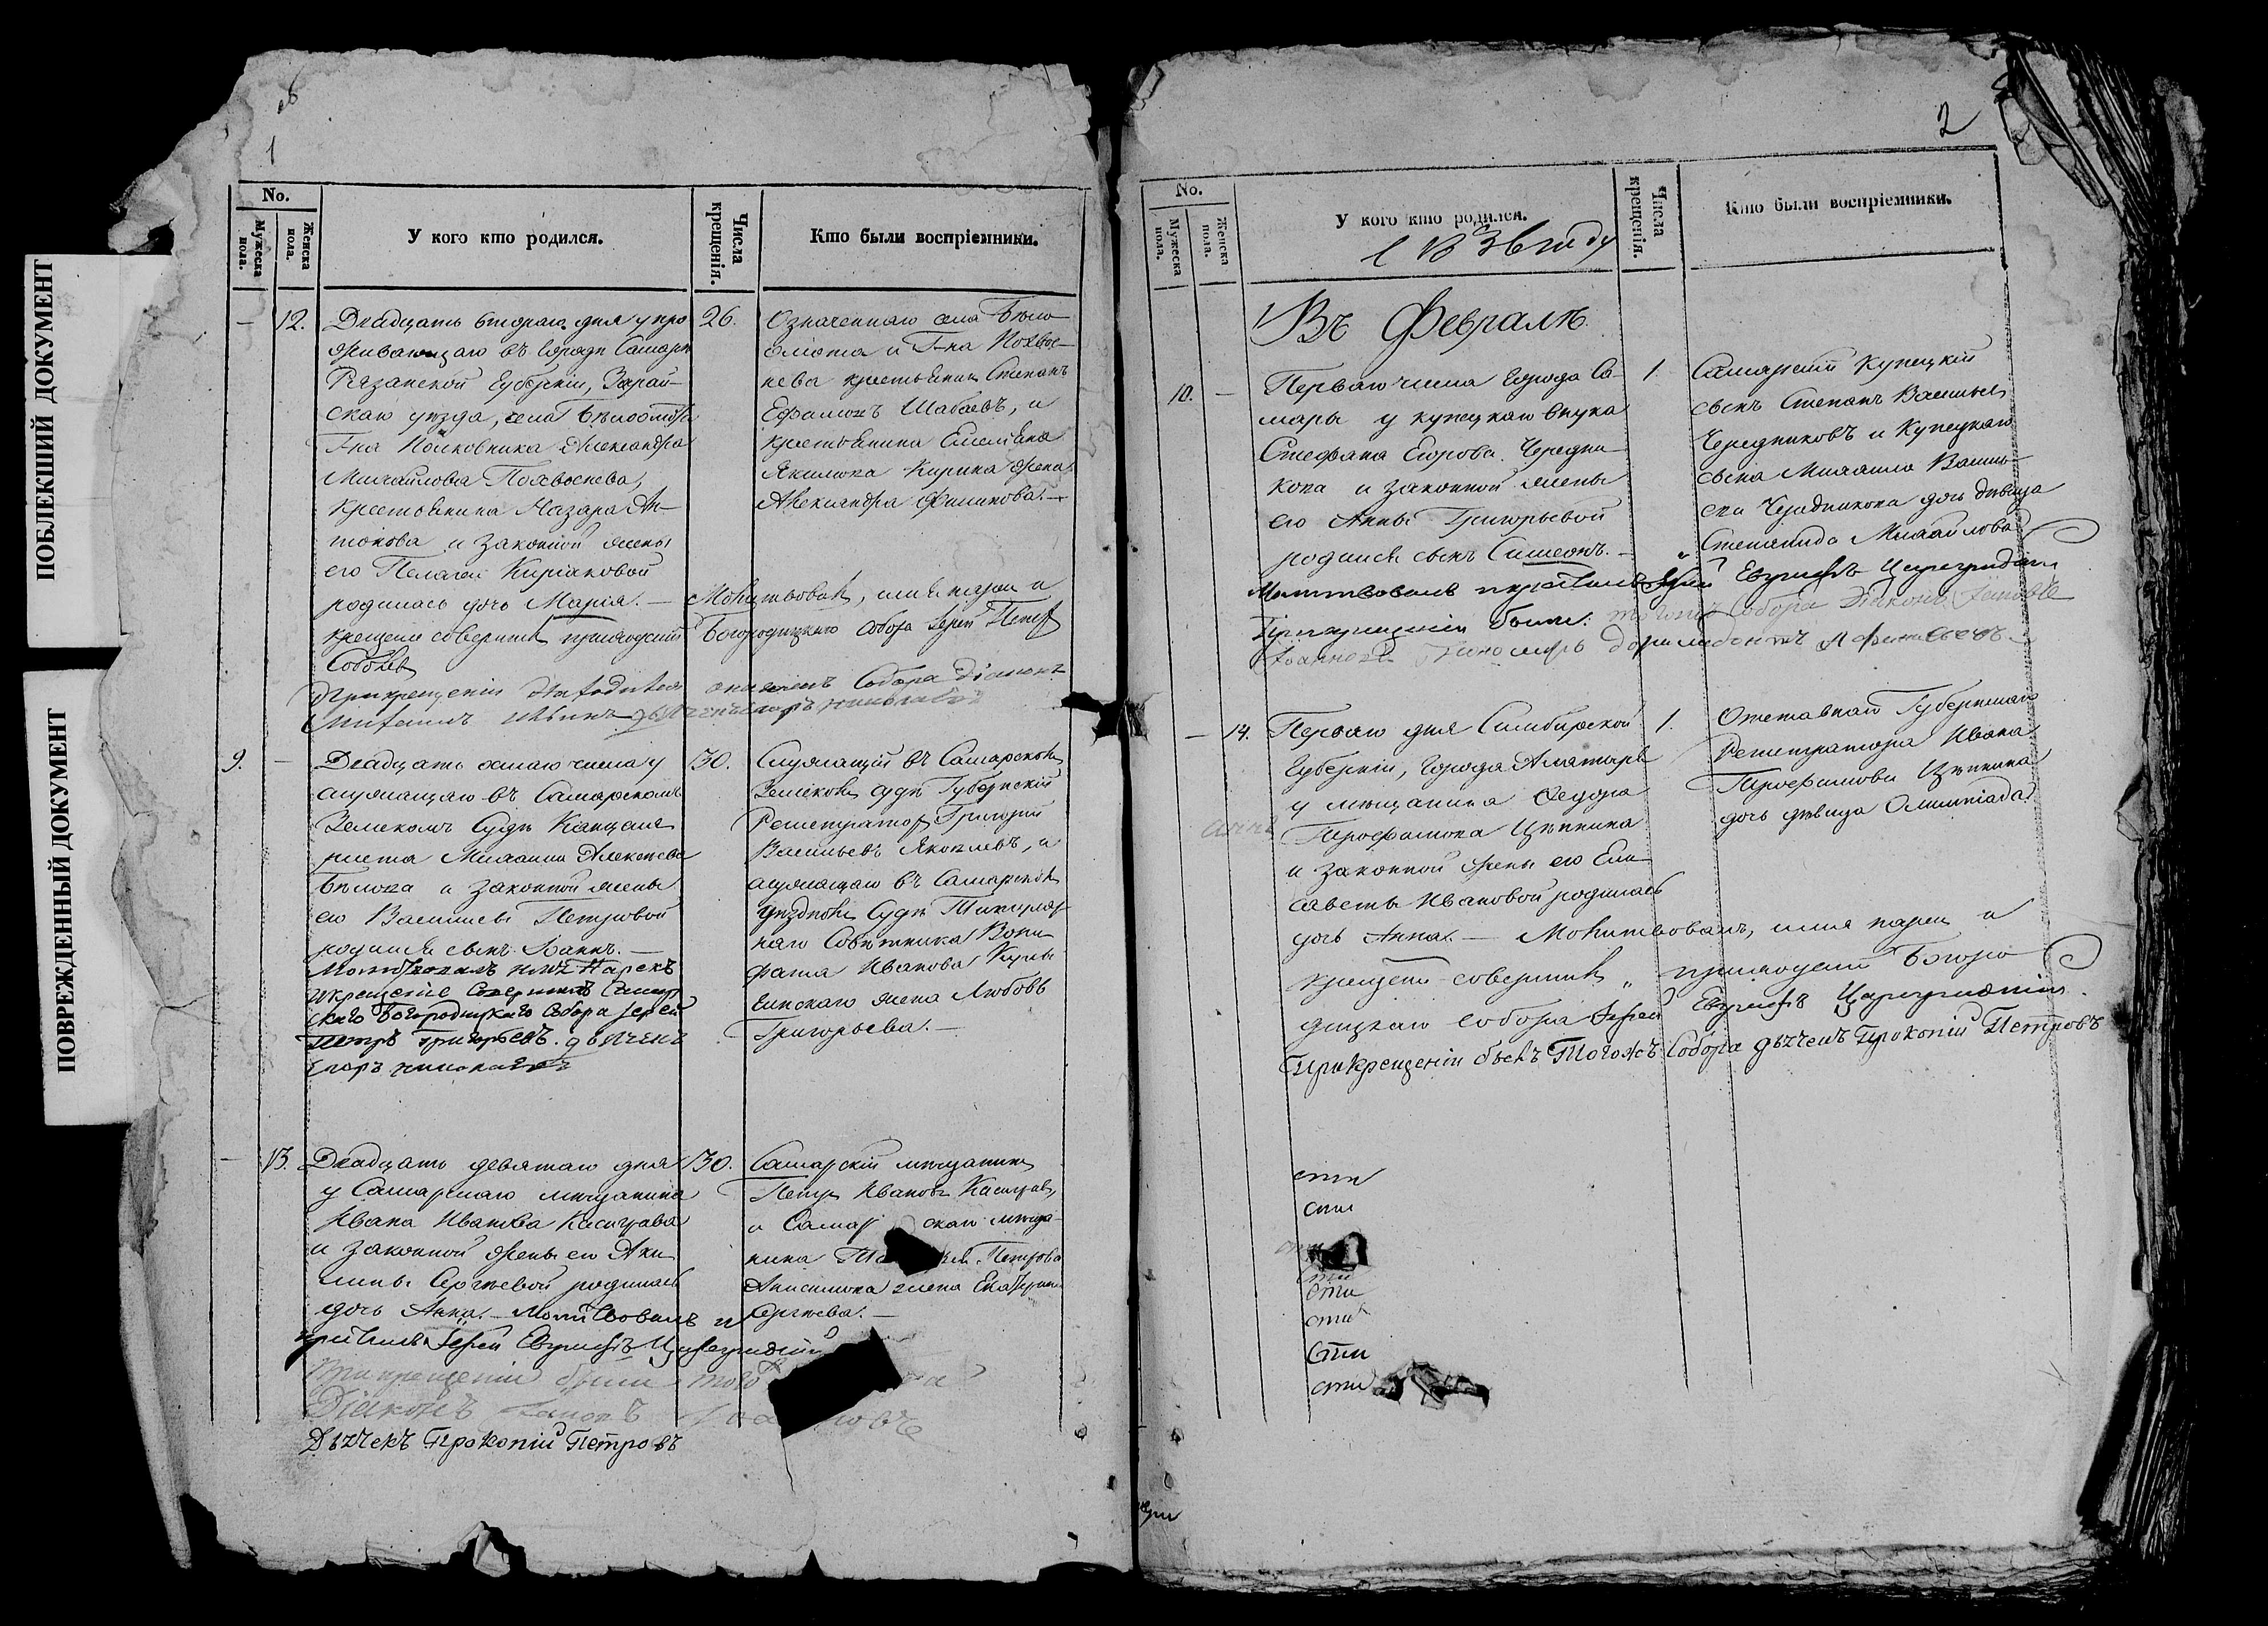 ПОБЛЕКШИЙ ДОКУМЕНТ
ПОВРЕЖДЕННЫЙ ДОКУМЕНТ
1
No.
Мужеска пола.
Женска пола.
У кого кто родился.
Числа крещенія.
Кто были воспріемники.
— 12.
Двадцать втораго дня у про
живающаго въ городѣ Самарѣ
Рязанской Губерніи, Зарай-
скаго уѣзда, села Бѣлоомута
Г-на Полковника Александра
Михайлова Похвоснева,
крестьянина Назара Ан-
тонова и законной жены
его Пелагеи Киріаковой
родилась дочь Марія. —
26.
Означеннаго села Бѣло-
омута и Г-на Похвос-
нева крестьянинъ Степанъ
Ефимовъ Шабаевъ, и
крестьянина Емельяна
Якимова Кирина жена
Александра Филипова. —
Молитвовалъ, имя нарек и
крещение совершилъ приходскій Богородицкаго Собора Іерей Петръ
Соболев
При крещеніи находился оначенъ Собора Діаконъ
9. —
Двадцать осмаго числа у
служащаго въ Самарскомъ
Земскомъ Судѣ Канцеля
риста Михаила Алексѣева
Бѣлова и законной жены
его Василисы Петровой
родился сынъ Іоаннъ. —
Молитвовалъ имя Нарекъ
и крещение Совершилъ Самар
скаго Богородицкаго Собора Іерей
Петръ Григорьевъ. дьячекъ
Егоръ Николаевъ
30.
Служащій въ Самарскомъ
Земскомъ судѣ Губернскій
Регистраторъ Григорій
Васильевъ Яковлевъ, и
служащаго въ Самарскомъ
уѣздномъ Судѣ Титуляр
наго Совѣтника Вони
фатія Иванова
жена Любовь
Григорьева. —
— 13.
Двадцать девятаго дня
у Самарскаго мѣщанина
Ивана Иванова
и законной жены его Аки
лины Сергѣевой родилась
дочь Анна. — Молитвовалъ и
крестилъ Іерей Евфимъ Цареградскій
При крещеніи были того
Діаконъ
Дьячекъ Прокопій Петровъ
30.
Самарскій мѣщанинъ
Петръ Ивановъ
и Самар скаго мѣща-
нина Петрова
Анисимова жена Екатерина
Сергѣева. —
2
No.
Мужеска пола.
Женска пола.
У кого кто родился.
Числа крещенія.
Кто были воспріемники.
Въ Февралѣ.
10. —
Перваго числа города Са-
мары у купецкаго внука
Стефана Егорова Чередни-
кова и законной жены
его Анны Григорьевой
родился сынъ Симеонъ. —
1.
Самарскій Купецкій
сынъ Степанъ Васильев
Чередниковъ и Купецкаго
сына Михаила Василь-
ева Чередникова дочь дѣвица
Степанида Михайлова
Молитвовалъ и крестилъ Іерей Евфимъ Цареградскій
При крещеніи были: тогожъ Собора Діаконъ
— 14.
Перваго дня Симбирской
Губерніи, города Алатыря
у мѣщанина Федора
Трофимова Цѣпкина
и законной жены его Ели
саветы Ивановой родилась
дочь Анна. — Молитвовалъ, имя нарек и
крещеніе совершилъ приходскій Богоро
дицкаго собора Іерей Евфимъ Цареградскій
При крещеніи былъ Тогожъ Собора дьячекъ Прокопій Петровъ
1.
Отставнаго Губернскаго
Регистратора Ивана
Трофимова Цѣпкина
дочь дѣвица Олимпіада.
Анна